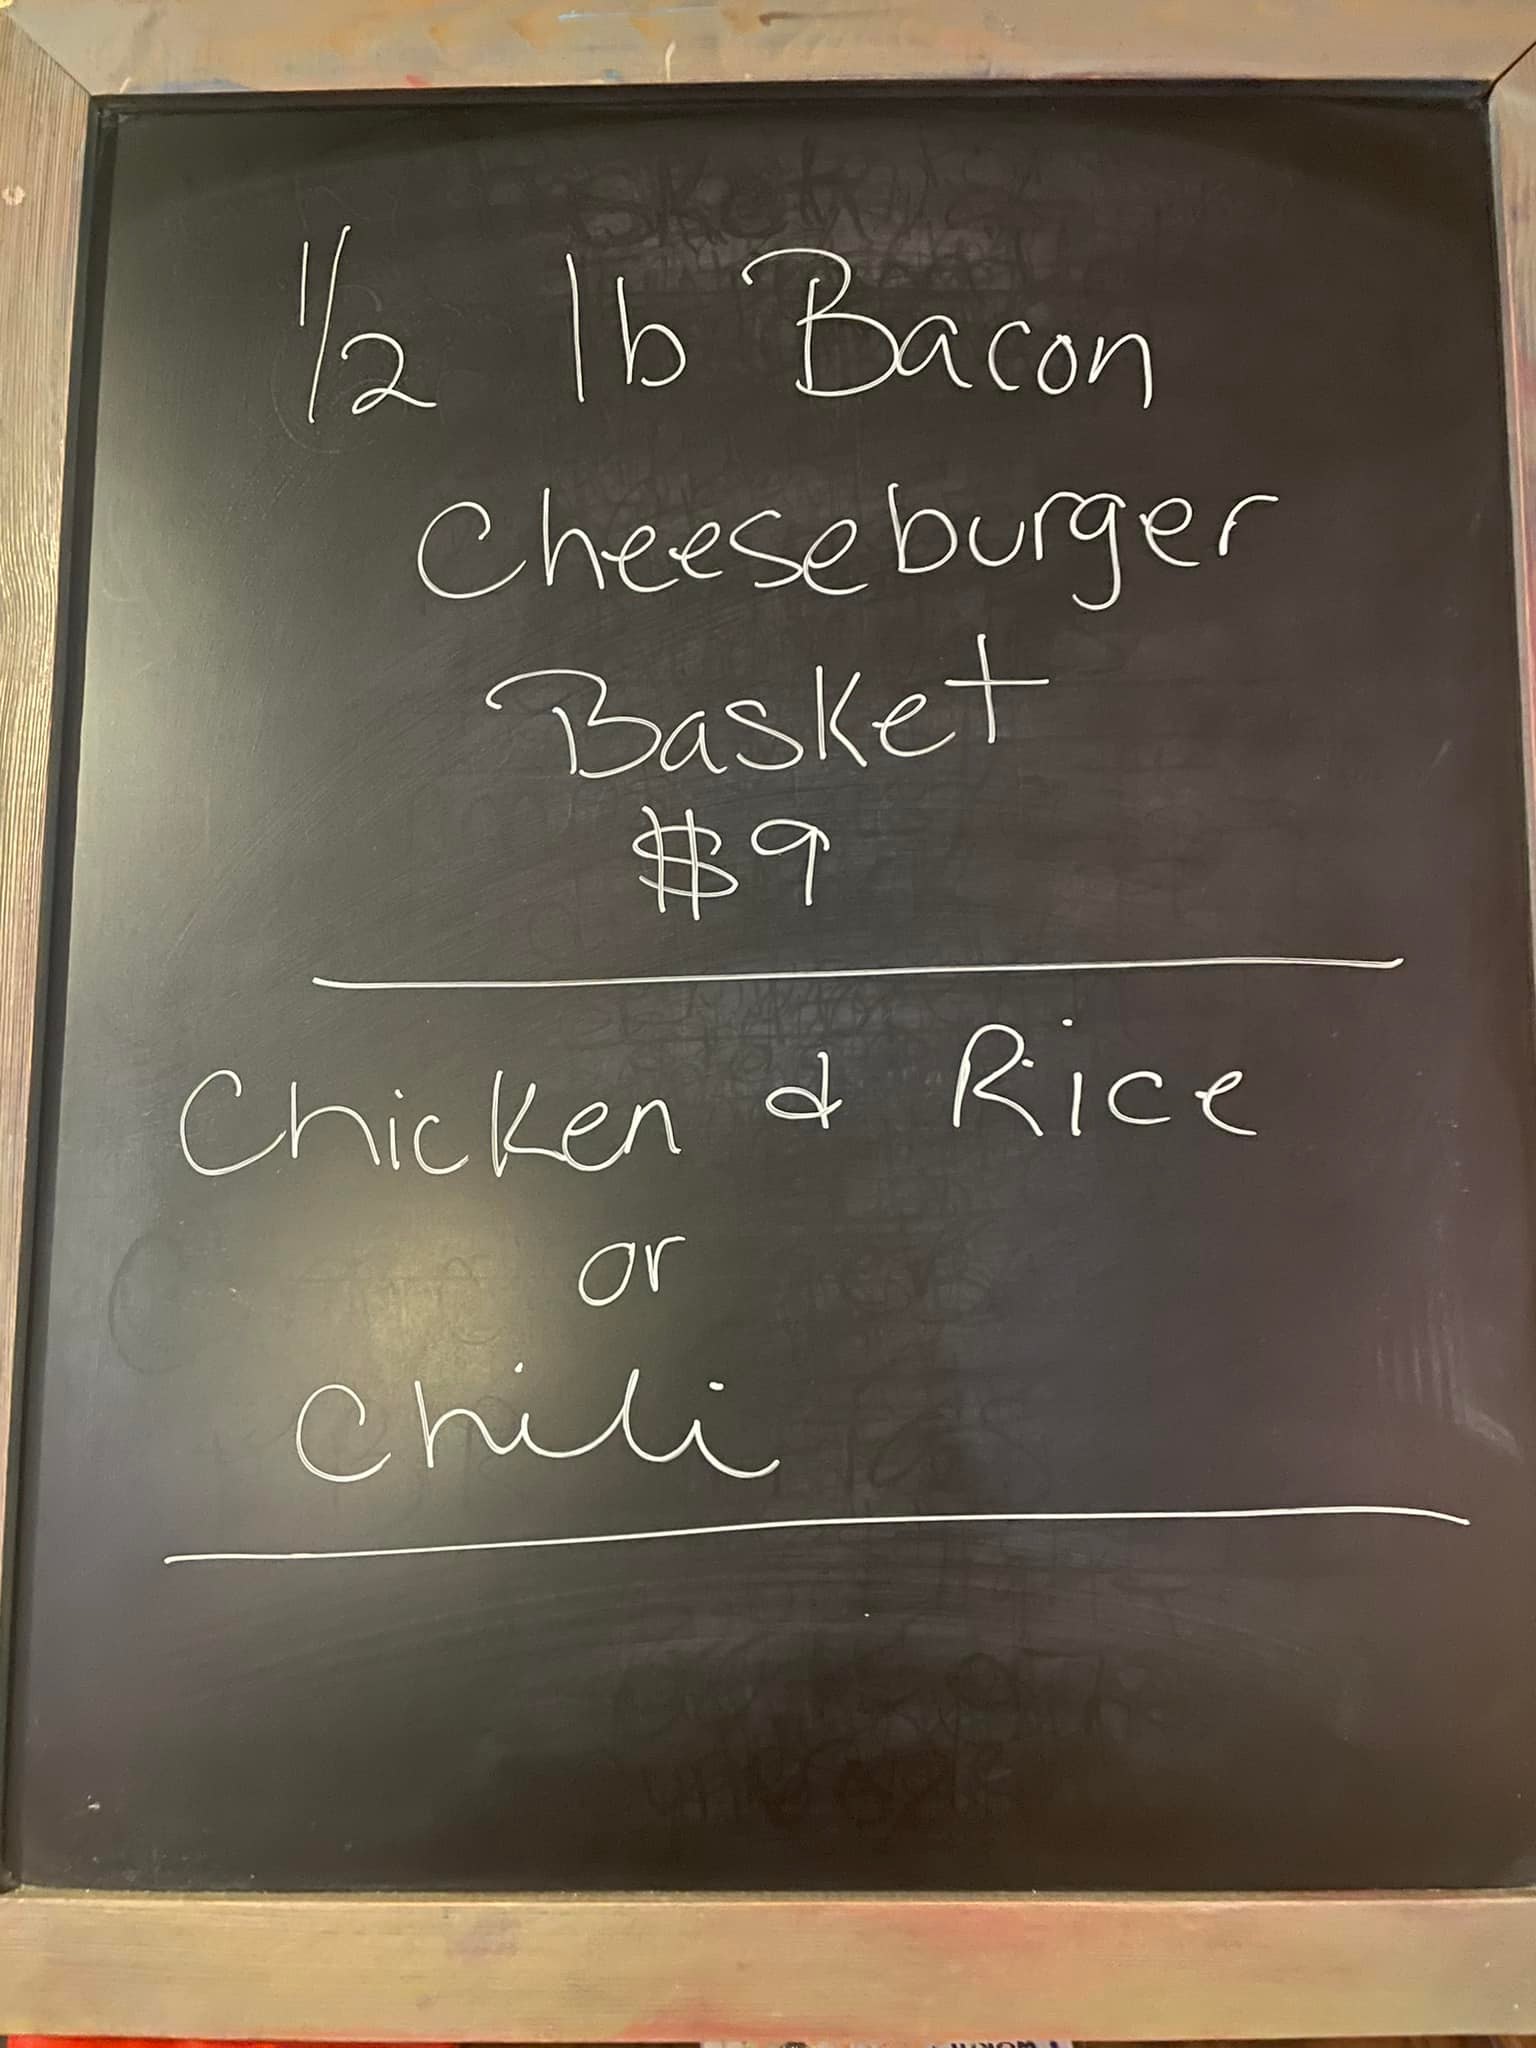 1/2 lb Bacon
Cheeseburger
Basket
$9
Chicken & Rice
or
Chili